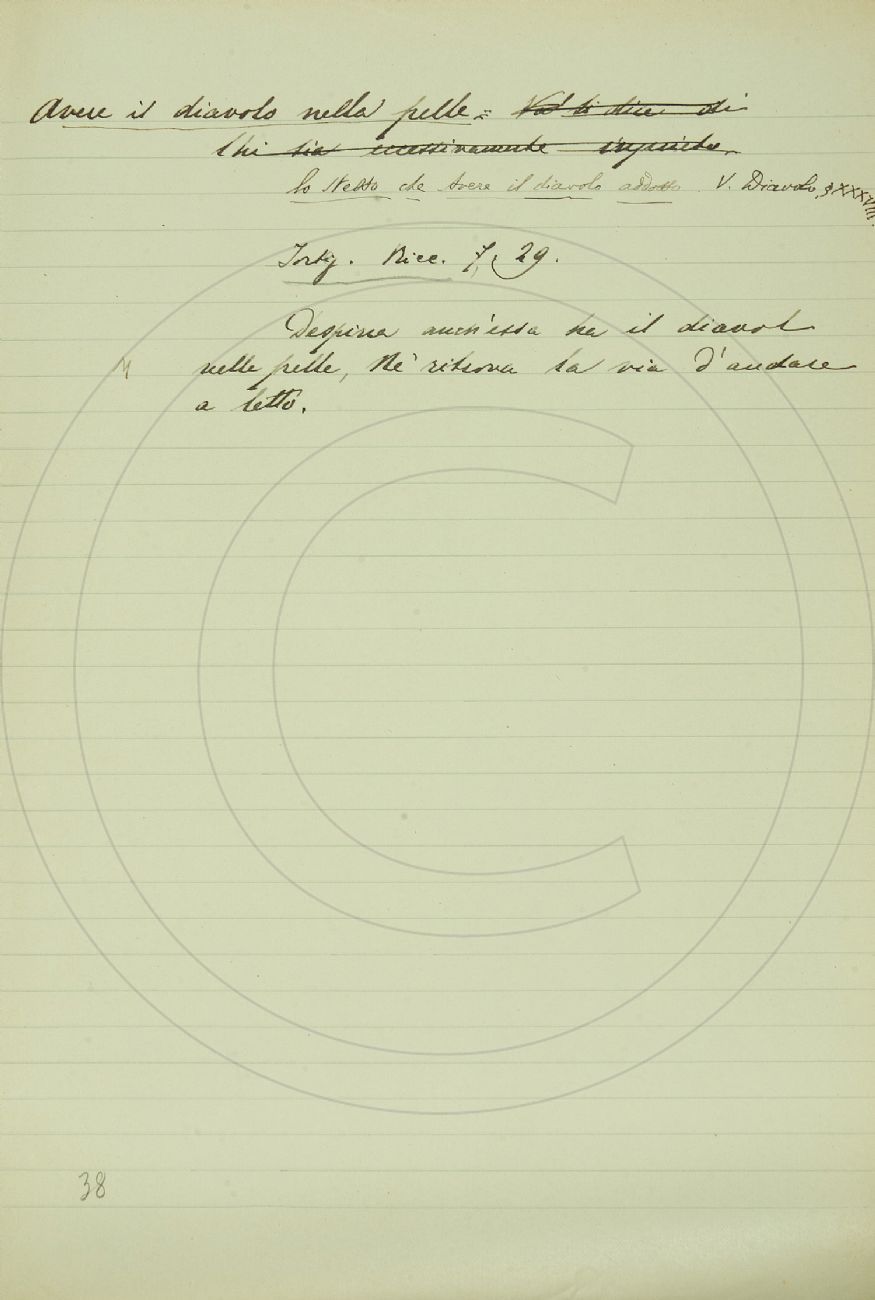 Avere il diavolo nella pelle = Val si dice di
chi sia eccessivamente inquieto.
lo stesso che Avere il diavolo addosso. V. Diavolo, § XXXVIII.
Fortig. Ricc. 7, 29.
Despina anch'essa ha il diavol
nelle pelle, Nè ritrova la via d'andare
a letto.
38